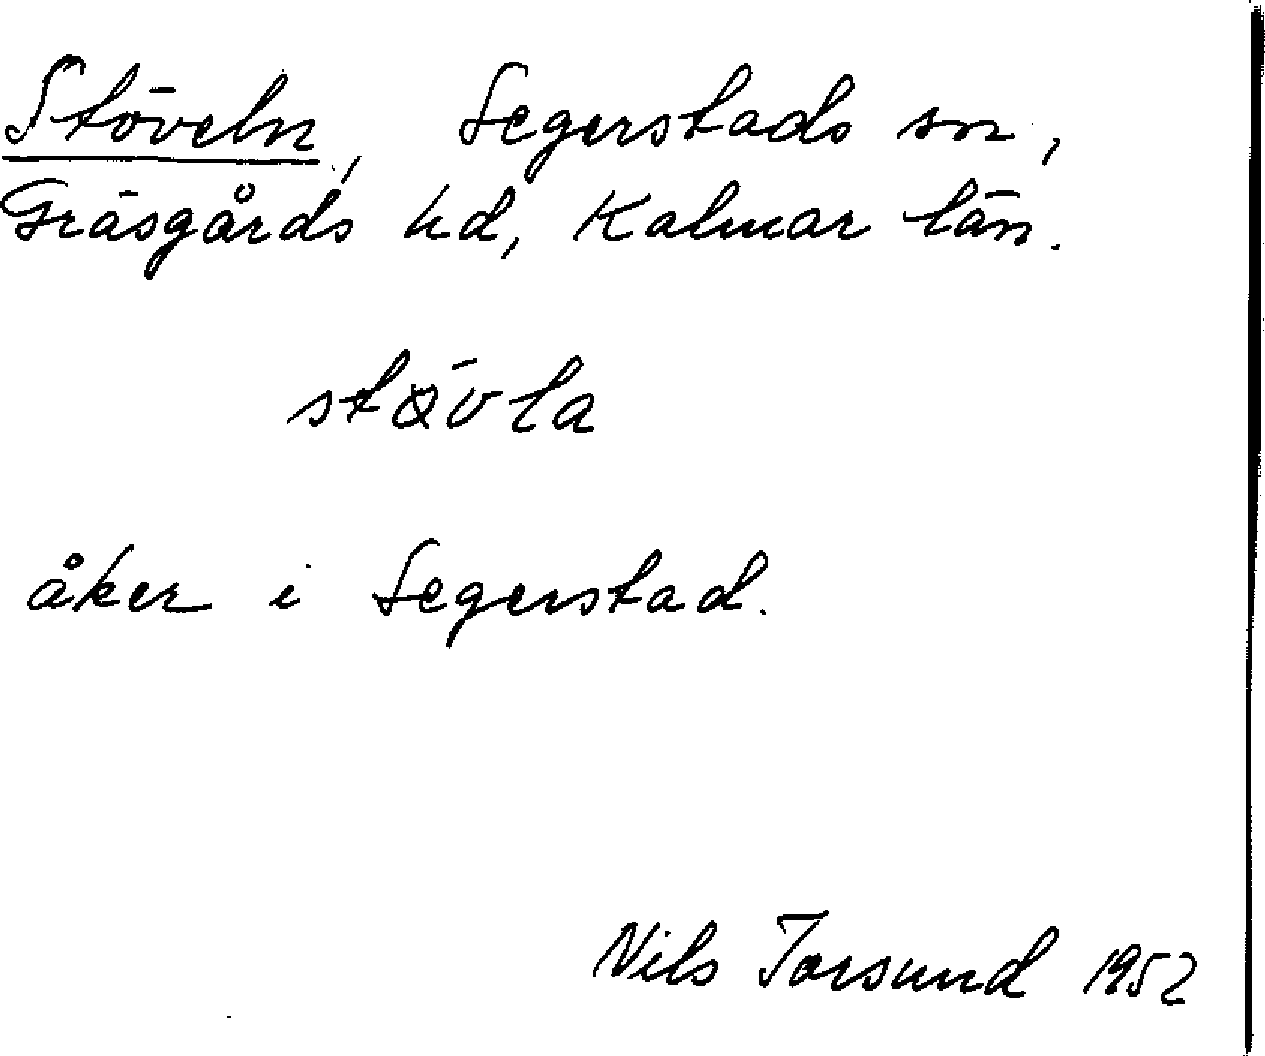 Stöveln, Segerstads sn,
Gräsgårds hd, Kalmar län.
stø̀vla
åker i Segerstad.
Nils Torsund 1952